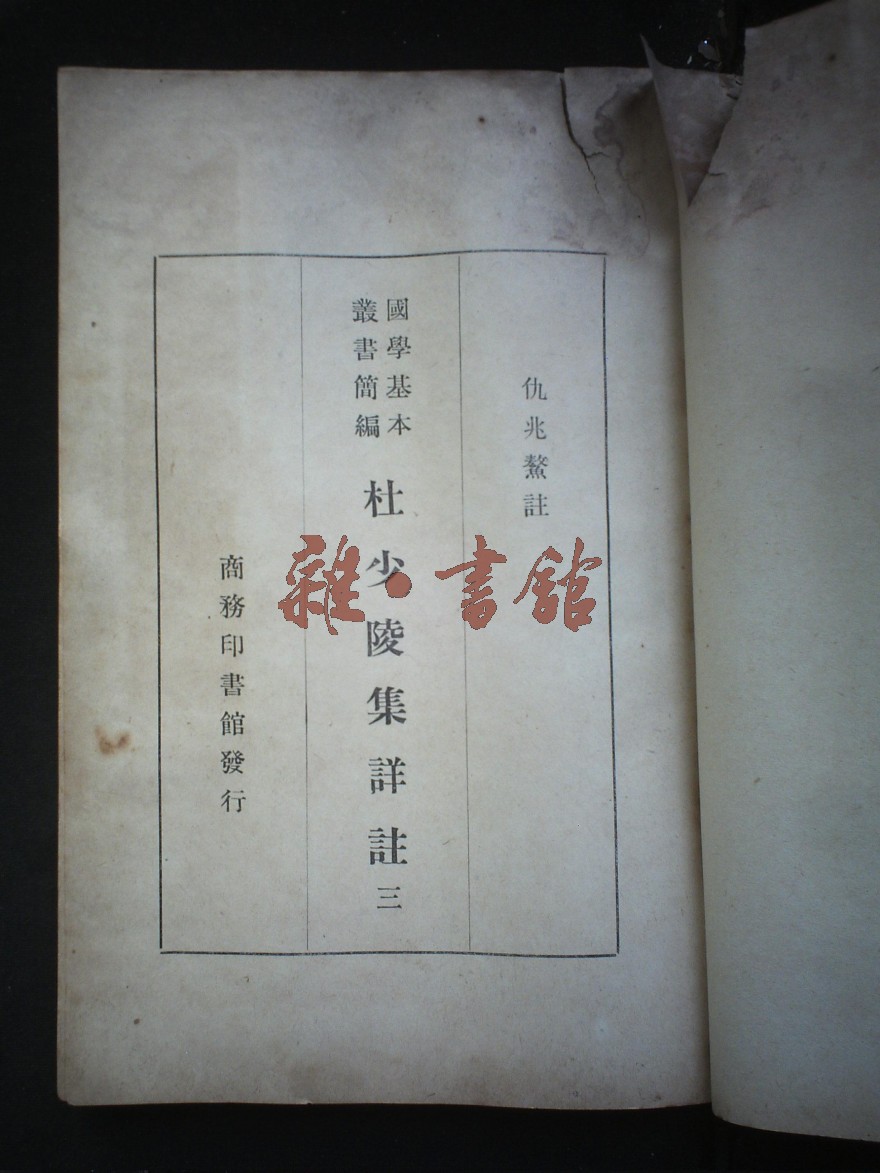 仇兆鰲註
國學基本
叢書簡編
杜少陵集詳註 三
商務印書館發行
雜·書館